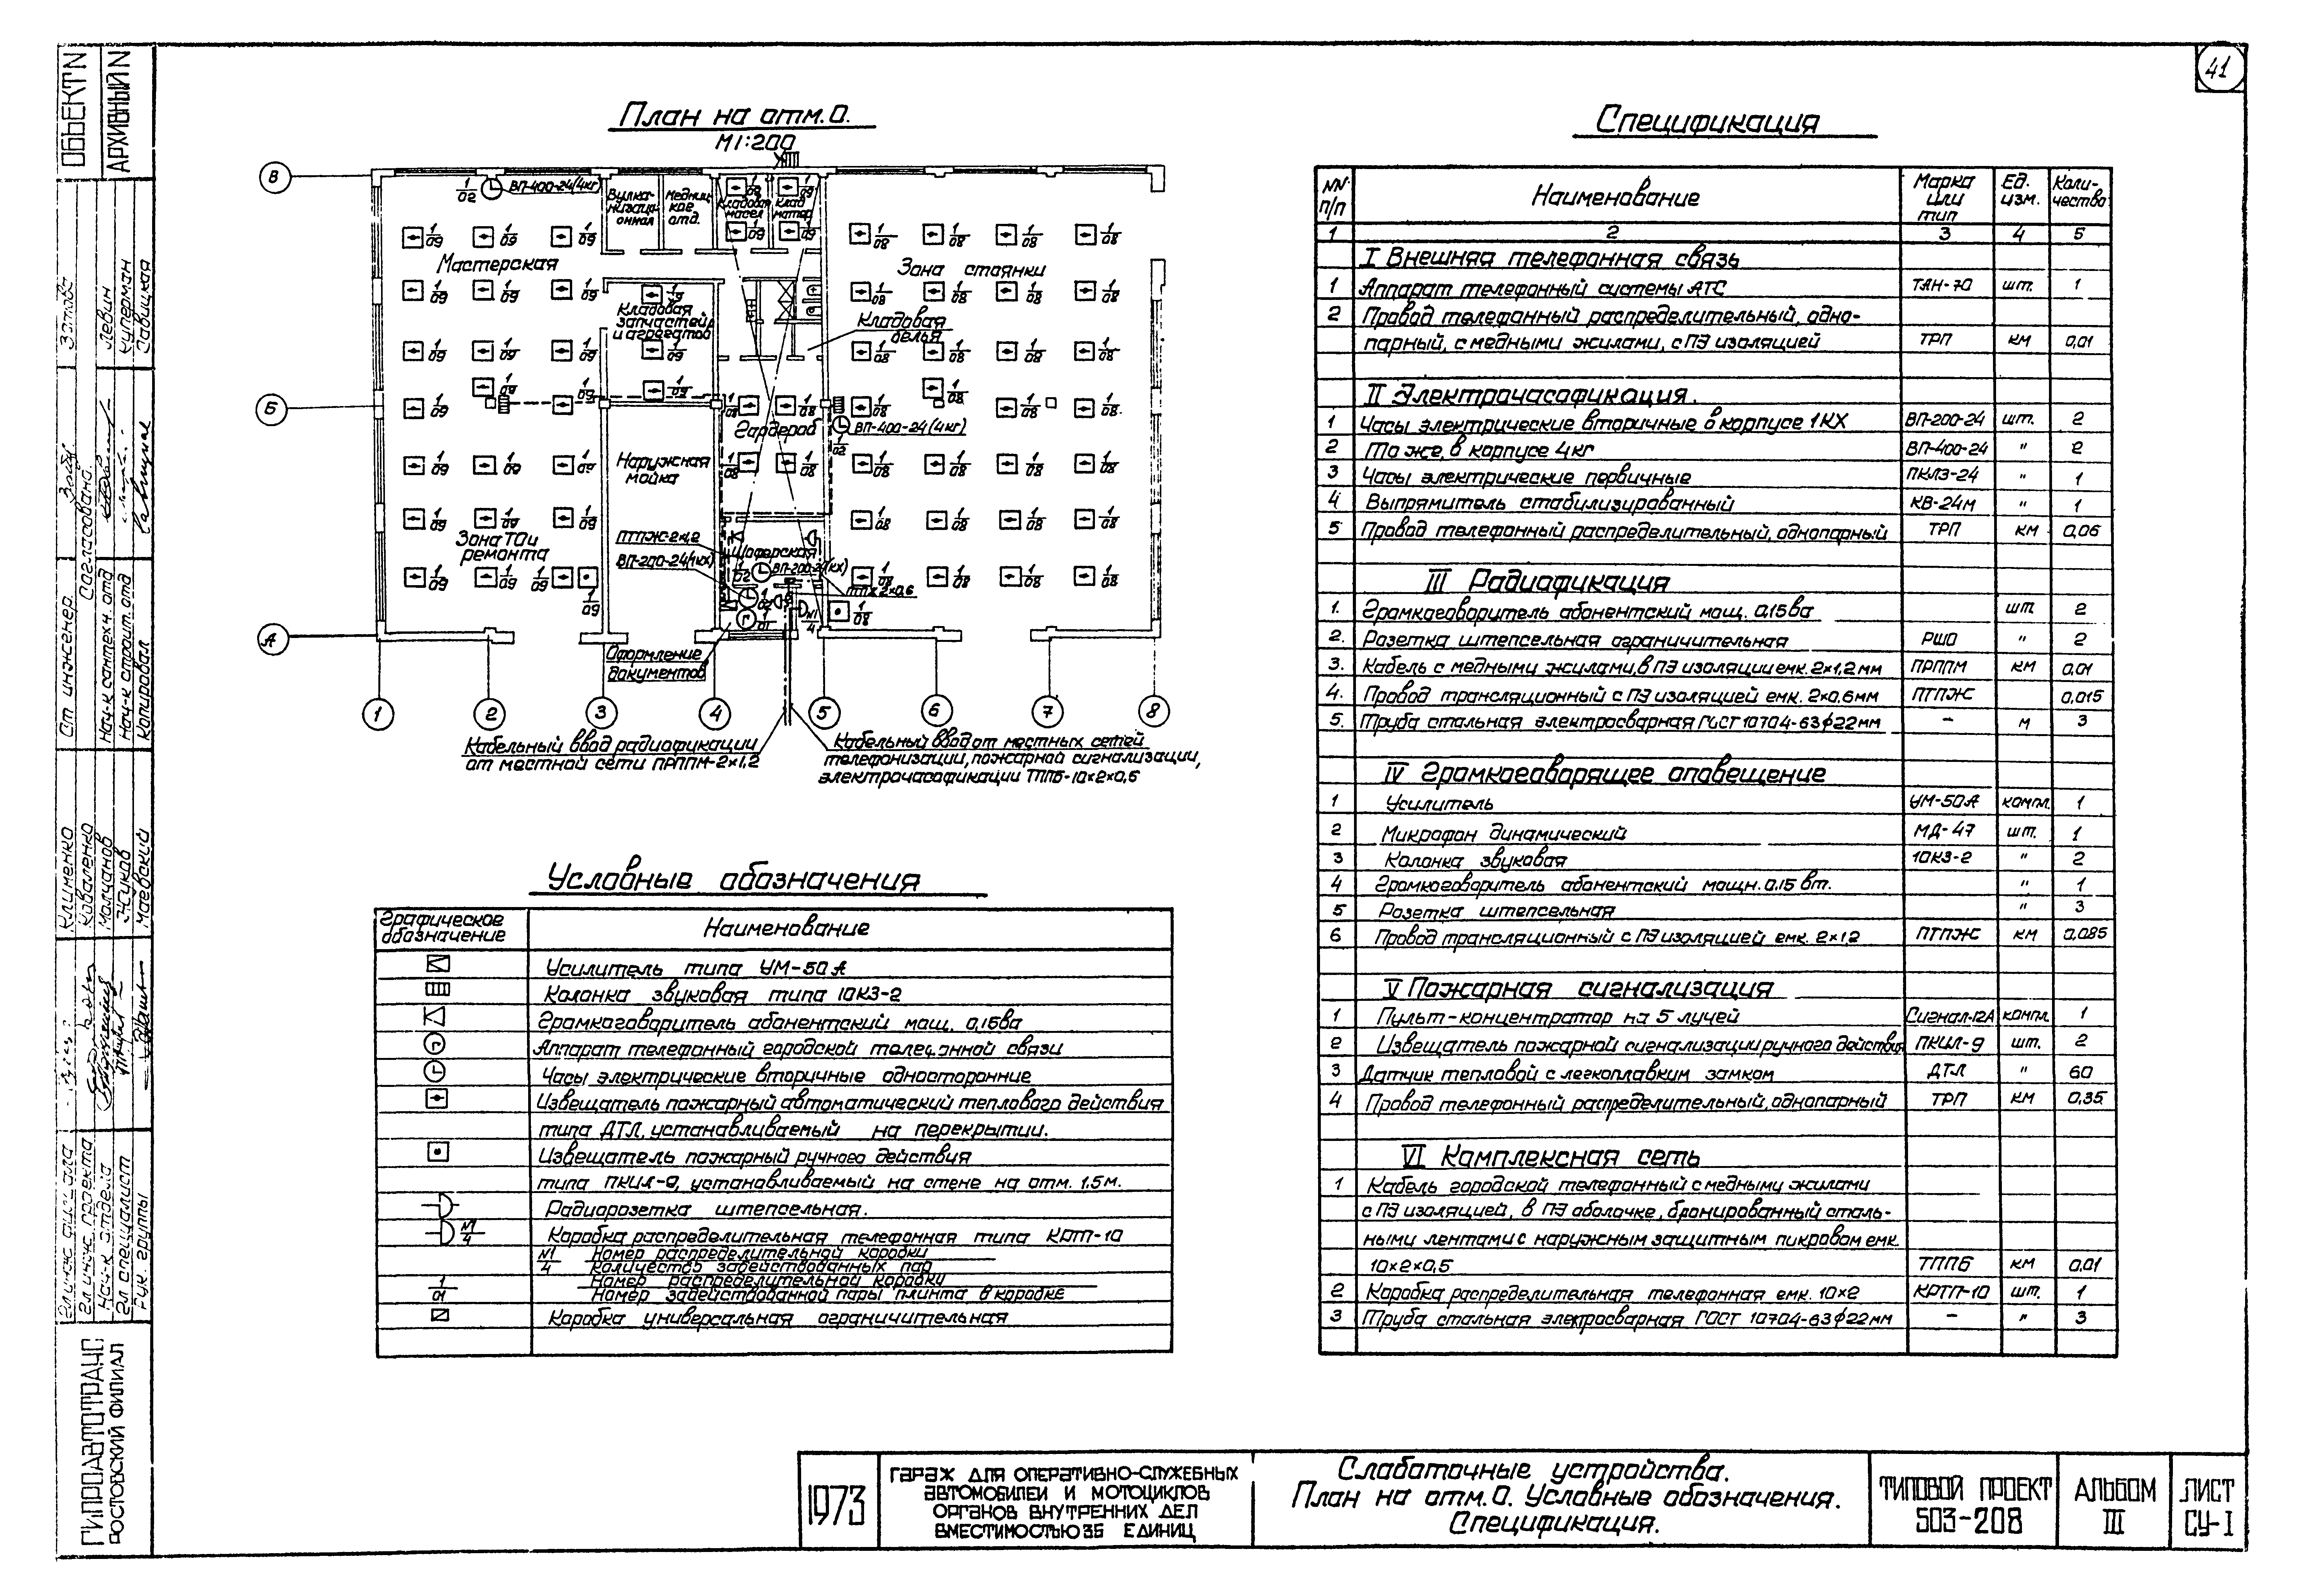 41
ОБЪЕКТ N
АРХИВНЫЙ N
План на отм. 0.
М1:200
В
Б
А
1/02
ВП-400-24(4кг)
Вулка-
низаци-
онная
Медниц-
кое
отд.
Кладовая
масел
Клад.
матер.
Мастерская
Зона стоянки
Кладовая
запчастей
и агрегатов
Кладовая
белья
Гардероб
ВП-400-24(4кг)
1/02
Наружная
мойка
Зона ТО и
ремонта
ПТПЖ-2×1,2
ВП-200-24(1КХ)
Шоферская
ВП-200-24(КХ)
ПТПЖ 2×0,6
1/09
1/08
Оформление
документов
1
2
3
4
5
6
7
8
Кабельный ввод радиофикации
от местной сети ПРППМ-2×1,2
Кабельный ввод от местных сетей
телефонизации, пожарной сигнализации,
электрочасофикации ТППБ-10×2×0,5
Условные обозначения
Графическое
обозначение
Наименование
Усилитель типа УМ-50А
Колонка звуковая типа 10КЗ-2
Громкоговоритель абонентский мощ. 0,15ва
Аппарат телефонный городской телефонной связи
Часы электрические вторичные односторонние
Извещатель пожарный автоматический теплового действия
типа ДТЛ, устанавливаемый на перекрытии.
Извещатель пожарный ручного действия
типа ПКИЛ-9, устанавливаемый на стене на отм. 1.5м.
Радиорозетка штепсельная.
N1/4 Коробка распределительная телефонная типа КРТП-10
N1 Номер распределительной коробки
4 Количество задействованных пар
1 Номер распределительной коробки
01 Номер задействованной пары плинта в коробке
Коробка универсальная ограничительная
Спецификация
NN п/п Наименование Марка или тип Ед. изм. Коли-чество
1 2 3 4 5
I Внешняя телефонная связь
1 Аппарат телефонный системы АТС ТАН-70 шт. 1
2 Провод телефонный распределительный, одно-
парный, с медными жилами, с ПЭ изоляцией ТРП км 0,01
II Электрочасофикация.
1 Часы электрические вторичные в корпусе 1КХ ВП-200-24 шт. 2
2 То же, в корпусе 4кг ВП-400-24 " 2
3 Часы электрические первичные ПКЛ3-24 " 1
4 Выпрямитель стабилизированный КВ-24м " 1
5 Провод телефонный распределительный, однопарный ТРП км 0,06
III Радиофикация
1. Громкоговоритель абонентский мощ. 0.15ва шт. 2
2. Розетка штепсельная ограничительная РШО " 2
3. Кабель с медными жилами, в ПЭ изоляции емк. 2×1,2мм ПРППМ км 0,01
4. Провод трансляционный с ПЭ изоляцией емк. 2×0,6мм ПТПЖ 0,015
5. Труба стальная электросварная ГОСТ 10704-63 ϕ22мм – м 3
IV Громкоговорящее оповещение
1 Усилитель УМ-50А компл. 1
2 Микрофон динамический МД-47 шт. 1
3 Колонка звуковая 10КЗ-2 " 2
4 Громкоговоритель абонентский мощн. 0.15 вт. " 1
5 Розетка штепсельная " 3
6 Провод трансляционный с ПЭ изоляцией емк. 2×1,2 ПТПЖ км 0,085
V Пожарная сигнализация
1 Пульт-концентратор на 5 лучей Сигнал-12А компл. 1
2 Извещатель пожарной сигнализации ручного действия ПКИЛ-9 шт. 2
3 Датчик тепловой с легкоплавким замком ДТЛ " 60
4 Провод телефонный распределительный, однопарный ТРП км 0,35
VI Комплексная сеть
1 Кабель городской телефонный с медными жилами
с ПЭ изоляцией, в ПЭ оболочке, бронированный сталь-
ными лентами с наружным защитным пикровом емк.
10×2×0,5 ТППБ км 0,01
2 Коробка распределительная телефонная емк. 10×2 КРТП-10 шт. 1
3 Труба стальная электросварная ГОСТ 10704-63 ϕ22мм – " 3
Ст инженер.
Согласовано
Нач-к сантехн. отд
Нач-к строит. отд
Копировал
Левин
Куперман
Савицкая
Клименко
Коваленко
Молчанов
Жуков
Маевский
Гл инж. проекта
Нач-к отдела
Гл специалист
Рук. группы
ГИПРОАВТОТРАНС
РОСТОВСКИЙ ФИЛИАЛ
1973
ГАРАЖ ДЛЯ ОПЕРАТИВНО-СЛУЖЕБНЫХ
АВТОМОБИЛЕЙ И МОТОЦИКЛОВ
ОРГАНОВ ВНУТРЕННИХ ДЕЛ
ВМЕСТИМОСТЬЮ 35 ЕДИНИЦ
Слаботочные устройства.
План на отм. 0. Условные обозначения.
Спецификация.
ТИПОВОЙ ПРОЕКТ
503-208
АЛЬБОМ
III
ЛИСТ
СУ-1